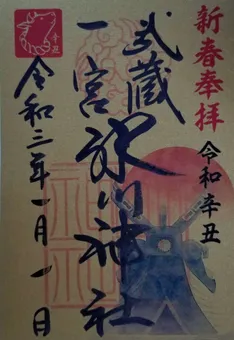 新春奉拝
令和辛丑
武蔵
一宮氷川神社
令和三年一月一日
辛丑